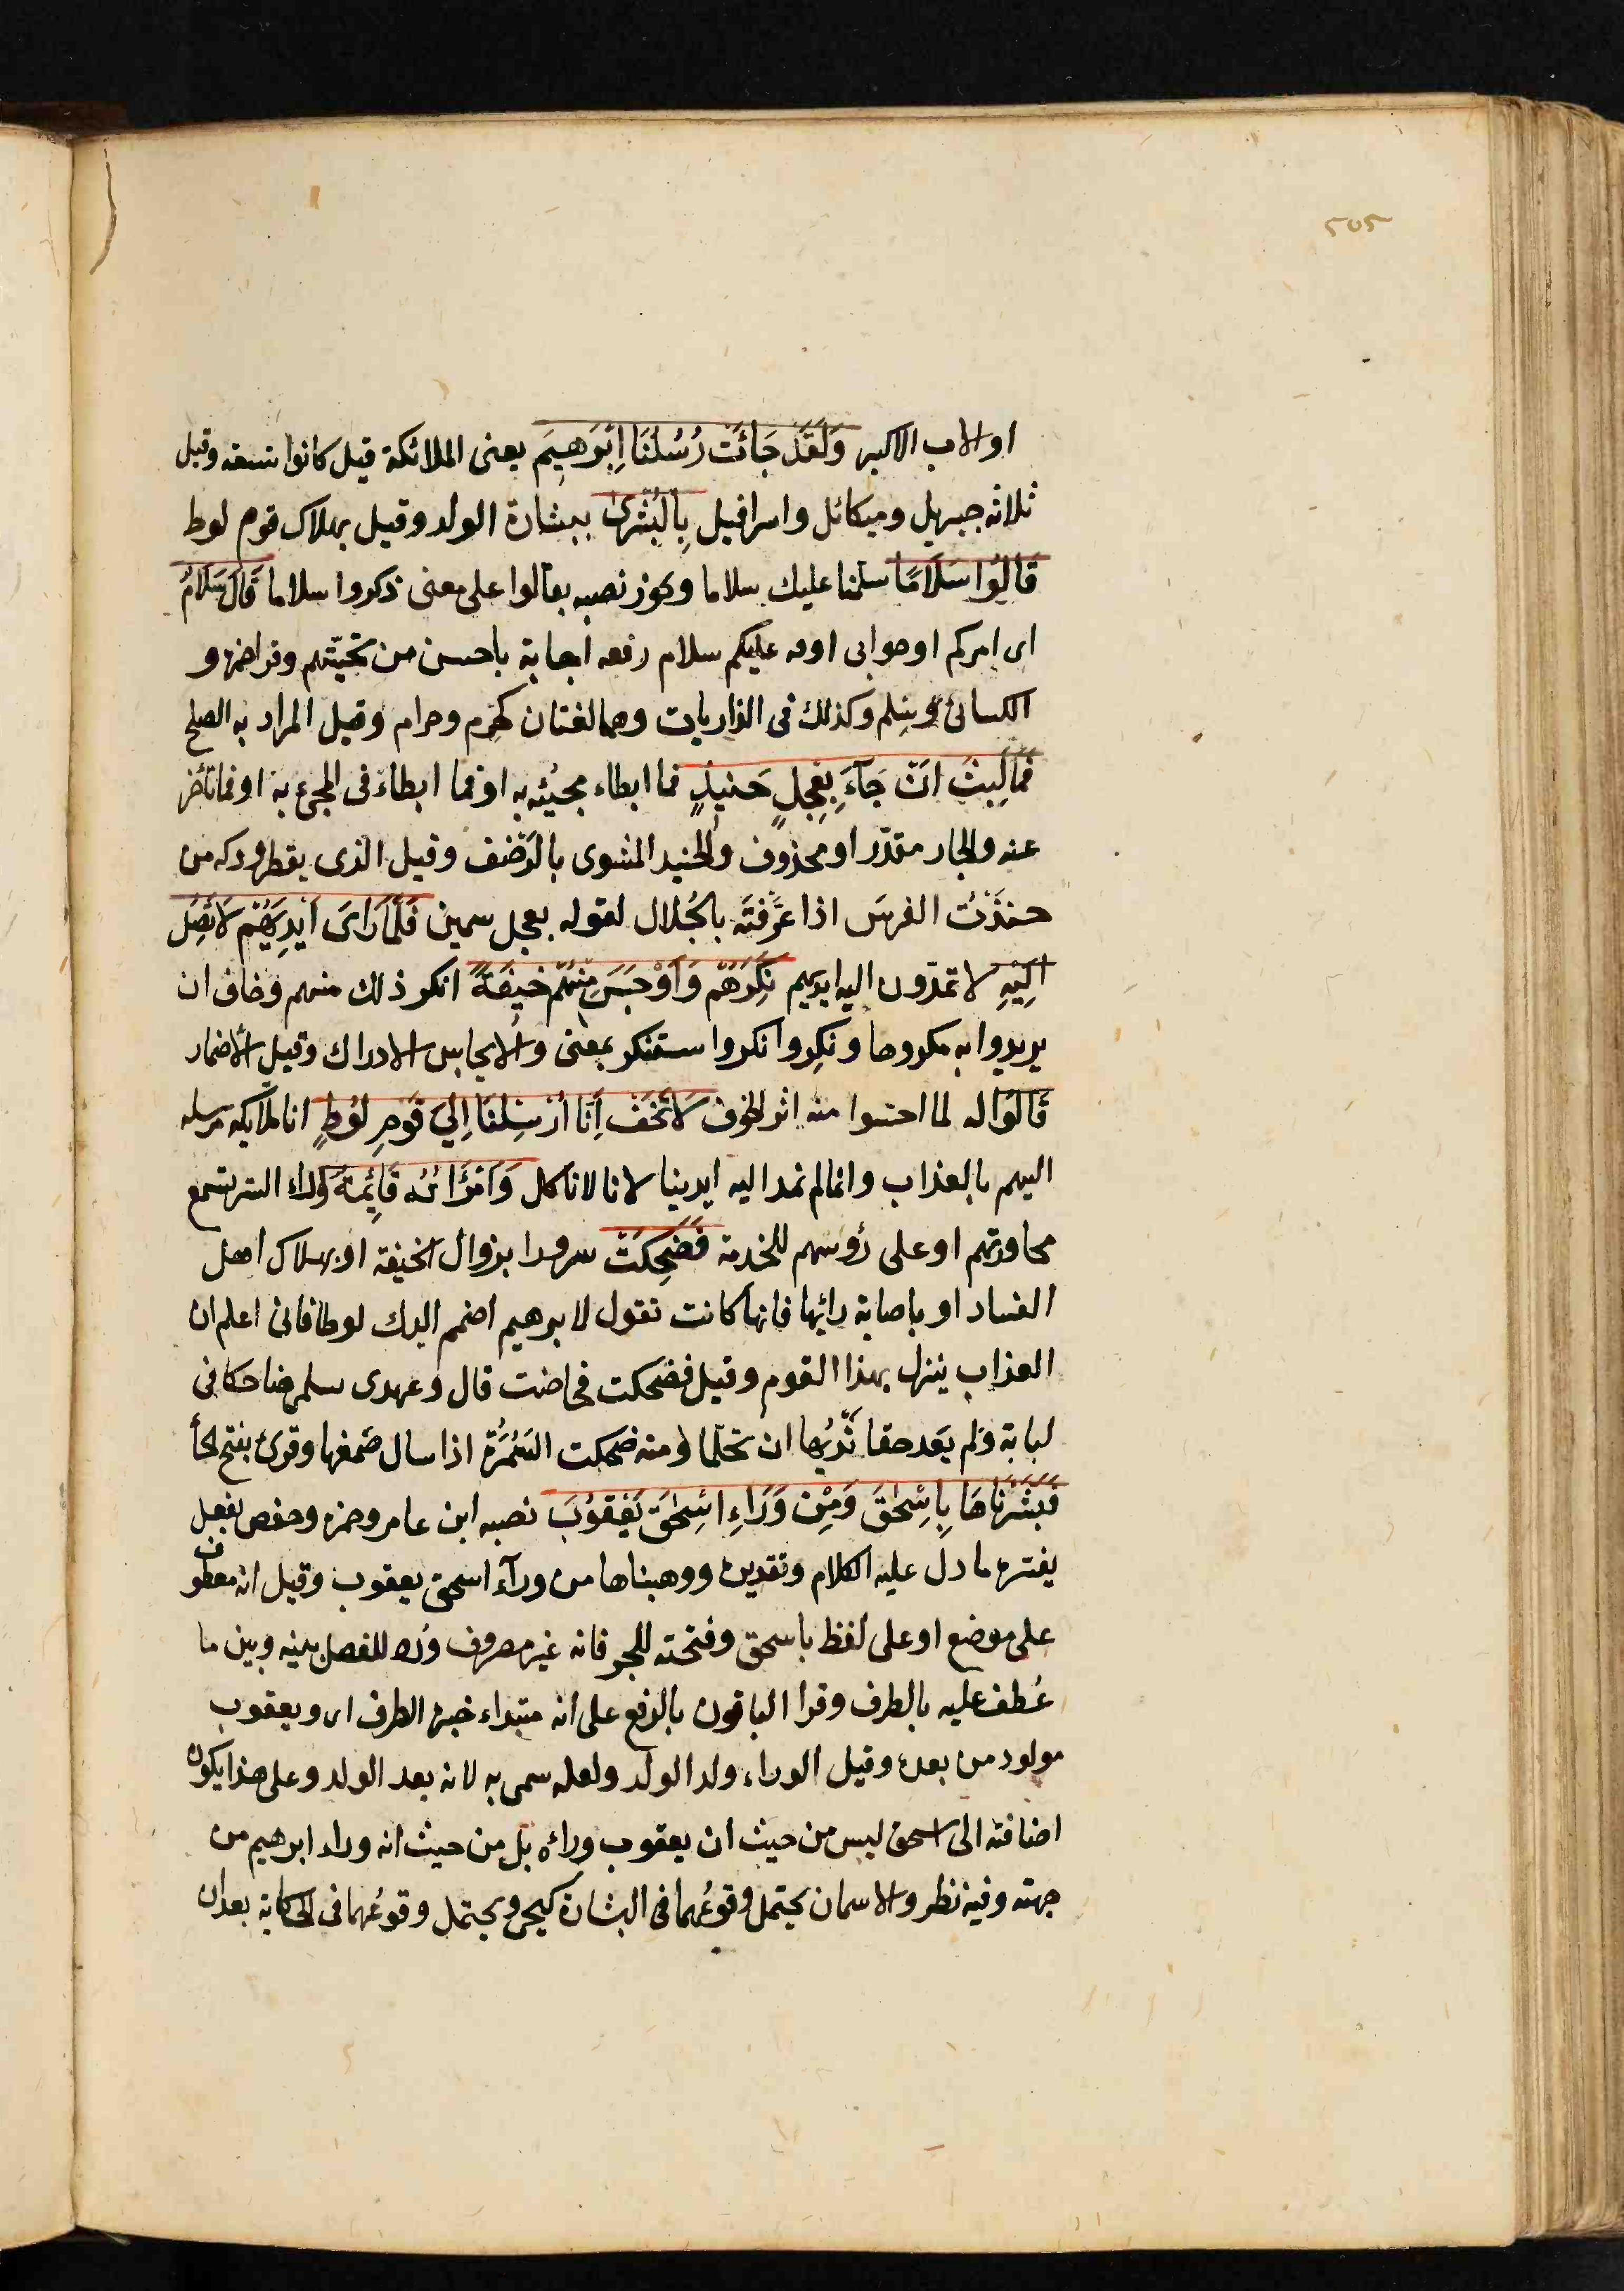 ٢٥٢
او الاب الاكبر وَلَقَدْ جَائَتْ رُسُلُنَا اِبْرَهِيمَ يعنى الملائكة قيل كانوا تسعة وقيل
ثلاثه جبريل وميكائل واسرافيل بِالْبُشْرىٰ ببشارة الولد وقيل بهلاك قوم لوط
قَالُوا سَلَامًا سلمنا عليك سلاما ويجوز نصبه بقالوا على معنى ذكروا سلاما قَالَ سَلَامٌ
اى امركم او جوابى او وعليكم سلام رفعه اجابة باحسن من تحيتهم وقرا حمزه و
الكسائى سِلم وكذلك فى الذاريات وهما لغتان كحرم وحرام وقيل المراد به الصلح
فَمَا لَبِثَ اَنْ جَآءَ بِعِجْلٍ حَنِيذٍ فما ابطاء مجيئه به او فما ابطاء فى المجىء به او فما تأخر
عنه والجار مقدّر او محذوف والحنيذ المشوى بالرَضف وقيل الذى يقطر ودكه من
حنذْتُ الفرسَ اذا عَرَّقتَه بالجُلال لقوله بعجل سمين فَلَمَّا رَاىَ اَيْدِيَهُمْ لَا تَصِلُ
اِلَيْهِ لا تمدّون اليه ايديهم نَكِرَهُمْ وَاَوْجَسَ مِنْهُمْ خِيفَةً انكر ذلك منهم وخاف ان
يريدوا به مكروها ونكِر وانكر واستنكر بمعنى والايجاس الادراك وقيل الاضمار
قَالُوا له لما احسوا منه اثر الخوف لَا تَخَفْ اِنَّا اُرْسِلْنَا اِلٰى قَوْمِ لُوطٍ انا ملايكه مرسله
اليهم بالعذاب وانما لم نمد اليه ايدينا لانا لا ناكل وَامْرَاَتُهُ قَائِمَةٌ وراء الستر تسمع
محاورتهم او على رؤسهم للخدمة فَضَحِكَتْ سرورا بزوال الخيفة او بهلاك اهل
الفساد او باصابة رائها فانها كانت تقول لابرهيم اضمم اليك لوطا فانى اعلم ان
العذاب ينزل بهذا القوم وقيل فضحكت فحاضت قال وعهدى سلمى ضاحكا فى
لبابة ولم يَعد حقا ثَديُها ان تحلما ومنه ضحكت السَمُرَة اذا سال صَمغها وقرئ بفتح الحأ
فَبَشَّرْنَاهَا بِاِسْحٰقَ وَمِنْ وَرَاءِ اِسْحٰقَ يَعْقُوبَ نصبه ابن عامر وحمزه وحفص بفعل
يفسره ما دل عليه الكلام وتقديره ووهبناها من ورآء اسحق يعقوب وقيل انه معطوف
على موضع او على لفظ باسحق وفتحته للجر فانه غير مصروف ورد للفصل بينه وبين ما
عُطف عليه بالظرف وقرا الباقون بالرفع على انه مبتداء خبره الظرف اى ويعقوب
مولود من بعده وقيل الوراء ولد الولد ولعله سمى به لانه بعد الولد وعلى هذا يكون
اضافته الى اسحق ليس من حيث ان يعقوب وراءه بل من حيث انه وراء ابرهيم من
جهته وفيه نظر والاسمان يحتمل وقوعُهما فى البشارة كيحى ويحتمل وقوعُهما فى الحكاية بعد ان